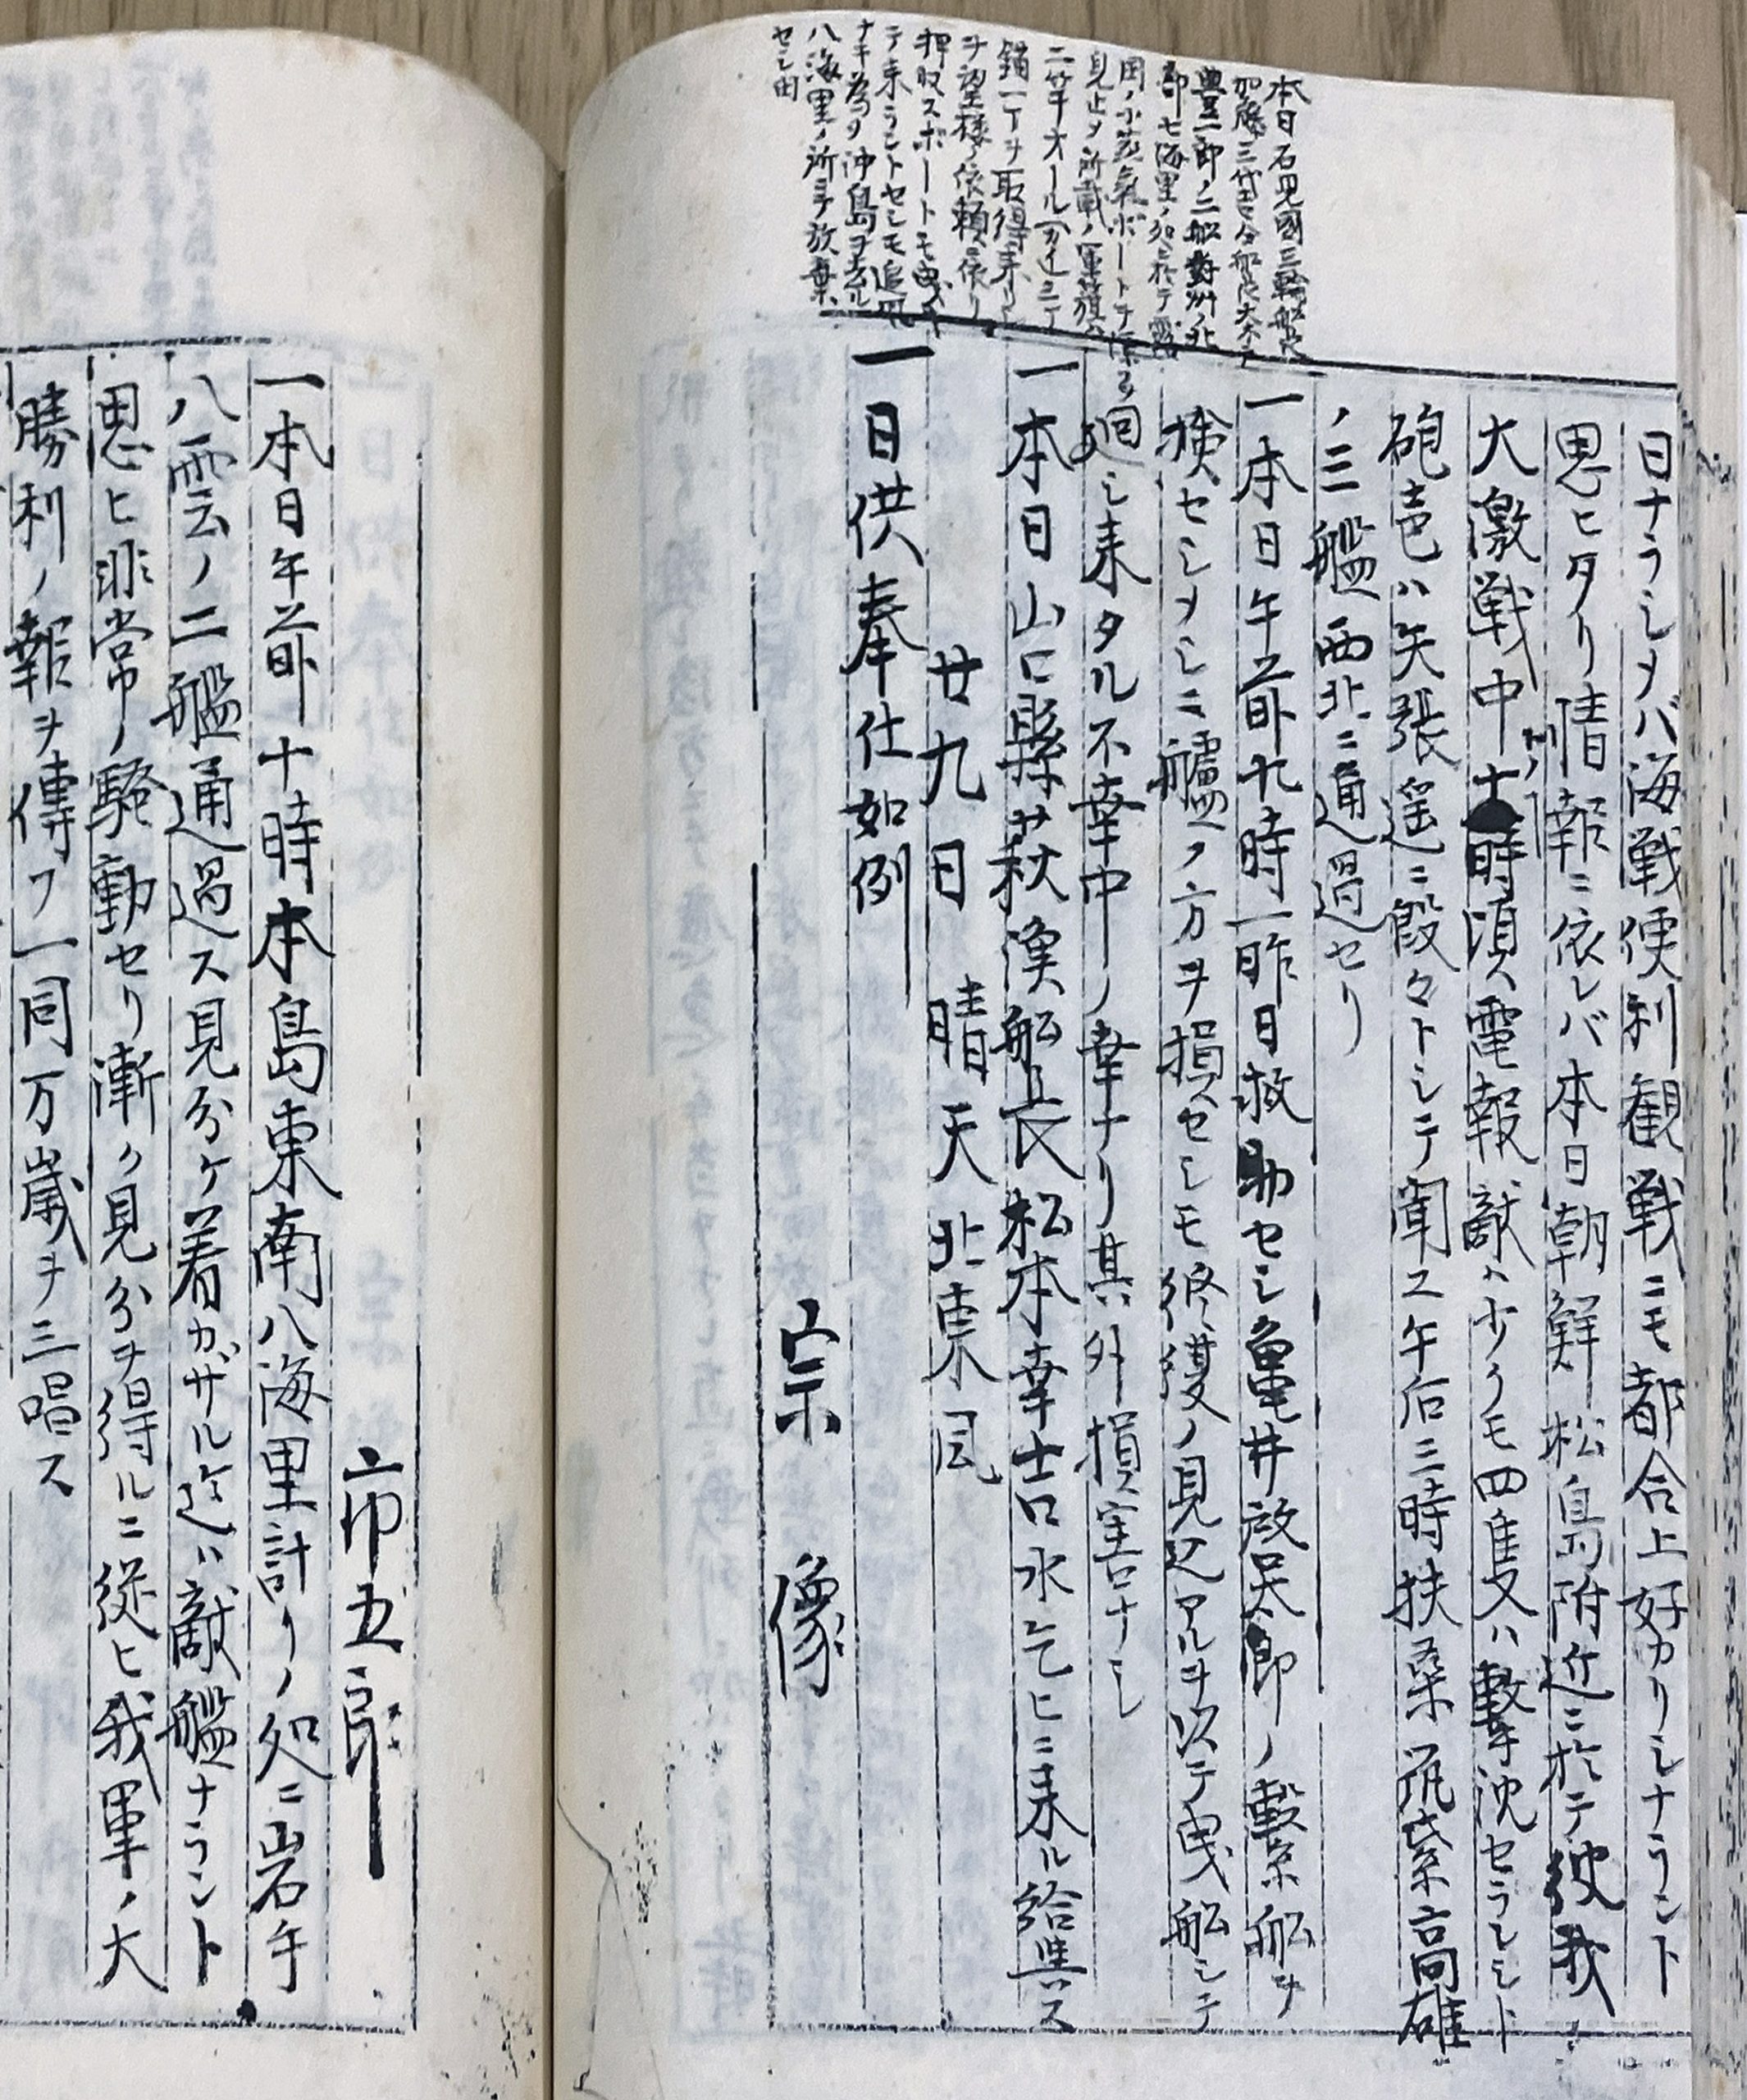 本日石見國三輪船長
加藤三代吉仝船長大木
豊一郎ノ二船對州ノ北
部七海里ノ処ニ於テ露
国ノ小蒸氣ボートヲ
見止メ所載ノ軍旗
二竿オール
錨一丁ヲ取得来リ
ヲ望楼ノ依頼ニ依リ
押収スボートモ曳キ
テ来ラントセシモ追風
ナキ為メ沖島ヲ去ル
八海里ノ所ニテ放棄
セシ由
日ナラシメバ海戦便利観戦ニモ都合上好カリシナラント
思ヒタリ情報ニ依レバ本日朝鮮松島附近ニ於テ彼我ノ
大激戦中十時頃電報敵ハ少クモ四隻ハ撃沈セラレシト
砲声ハ矢張遥ニ殷々トシテ聞ユ午后三時扶桑筑紫高雄
ノ三艦西北ニ通過セリ
一本日午前九時一昨日救助セシ亀井放吴郎ノ繋船ヲ
検セシメシニ艫ノ方ヲ損セシモ終纜ノ見込アルヲ以テ曳船シテ
廻シ来タル不幸中ノ幸ナリ其外損害ナシ
一本日山口縣萩漁船長松本幸吉水乞ヒニ来ル給與ス
廿九日 晴天 北東風
一日供奉仕如例
宗像
市五郎
一本日午前十時本島東南八海里計リノ処ニ岩手
八雲ノ二艦通過ス見分ケ着カザル迄ハ敵艦ナラント
思ヒ非常ノ騒動セリ漸ク見分ヲ得ルニ従ヒ我軍ノ大
勝利ノ報ヲ傳フ一同万歳ヲ三唱ス